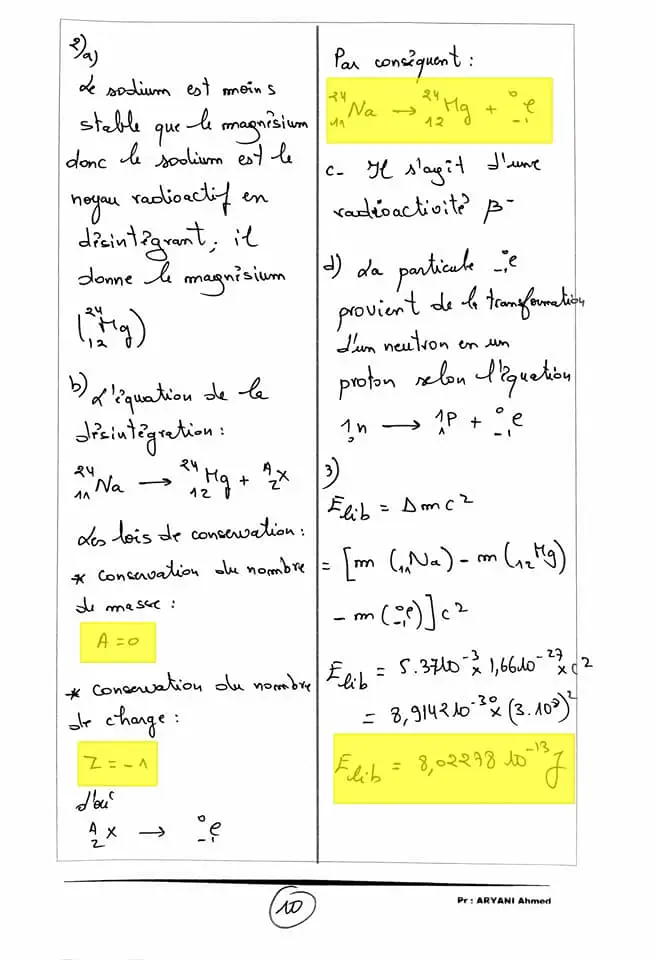 2)a)
Le sodium est moins
stable que le magnésium
donc le sodium est le
noyau radioactif en
désintégrant, il
donne le magnésium
(²⁴₁₂Mg)
b) L'équation de la
désintégration :
²⁴₁₁Na → ²⁴₁₂Mg + ᴬ_ZX
Les lois de conservation :
* conservation du nombre
de masse :
A = 0
* conservation du nombre
de charge :
Z = -1
d'où
ᴬ_ZX → ⁰₋₁e
Par conséquent :
²⁴₁₁Na → ²⁴₁₂Mg + ⁰₋₁e
c- Il s'agit d'une
radioactivité β⁻
d) La particule ⁰₋₁e
provient de la transformation
d'un neutron en un
proton selon l'équation
¹₀n → ¹₁P + ⁰₋₁e
3)
Elib = Δmc²
= [m(₁₁Na) - m(₁₂Mg)
- m(⁰₋₁e)]c²
Elib = 5.3710⁻³ × 1,6610⁻²⁷ × c²
= 8,914210⁻³⁰ × (3.10⁸)²
Elib = 8,02278 10⁻¹³ J
10
Pr : ARYANI Ahmed